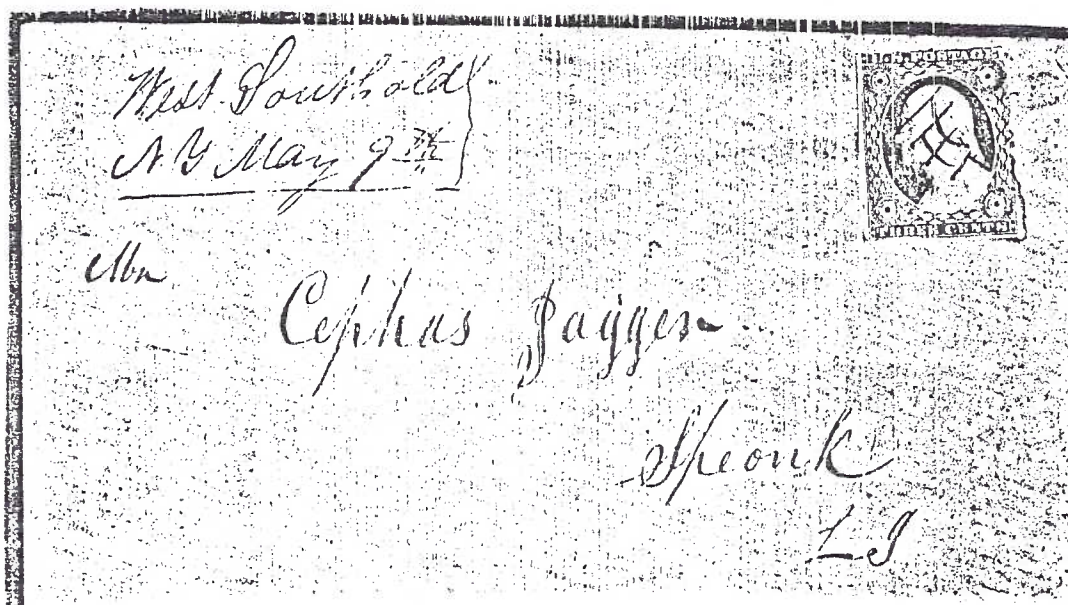 West Southold
N Y May 9th
U.S. POSTAGE
THREE CENTS
Mr
Cephas Jagger
Speonk
L I